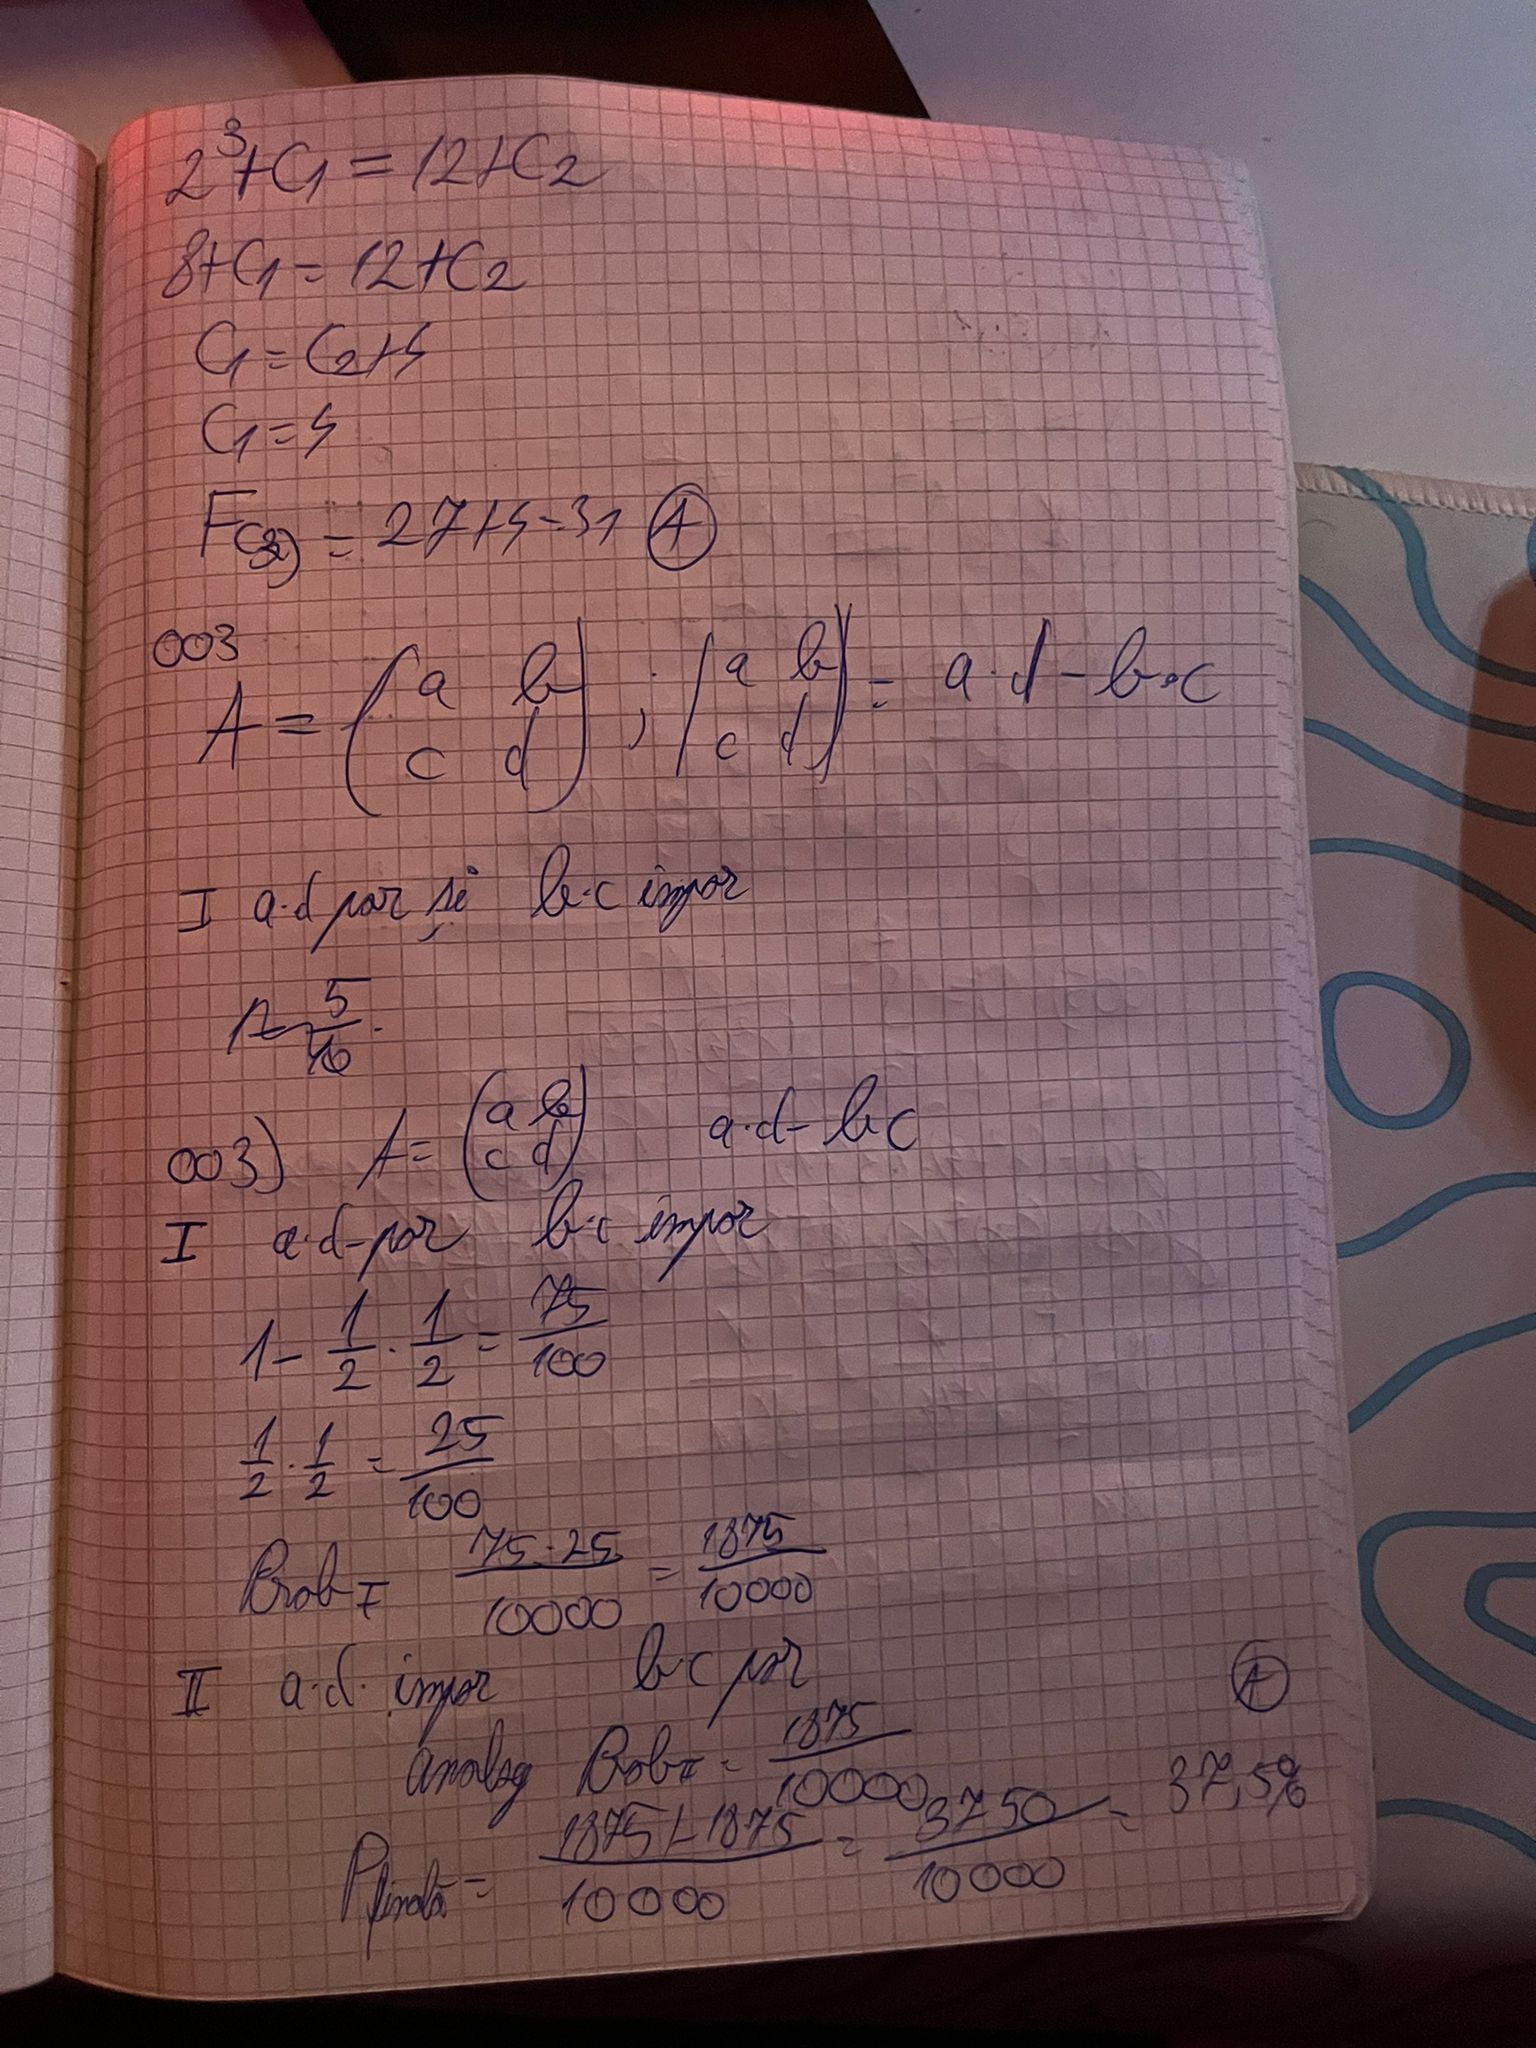 2³+C1 = 12+C2
8+C1 = 12+C2
C1 = C2+4
C1 = 4
F(3) = 27+4=31 (A)
003
A = (a b
c d) ; |a b
c d| = a·d - b·c
I a·d par și b·c impar
1- 5/16 .
003) A= (a b
c d) a·d- b·c
I a·d-par b·c impar
1- 1/2 · 1/2 = 75/100
1/2 · 1/2 = 25/100
Prob I 75·25/10000 = 1875/10000
II a·d· impar b·c par (A)
analog Prob II = 1875/10000
P finală = 1875+1875/10000 = 3750/10000 = 37,5%